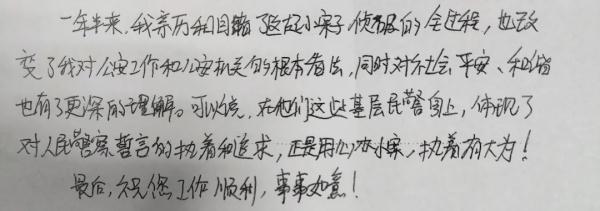 一年半来，我亲历和目睹了这起小案子侦破的全过程，也改
变了我对公安工作和公安机关的根本看法，同时对社会平安、和谐
也有了更深的理解。可以说，在他们这些基层民警身上，体现了
对人民警察誓言的执着和追求，正是用心办小案，执着有大为！
最后，祝您工作顺利，事事如意！